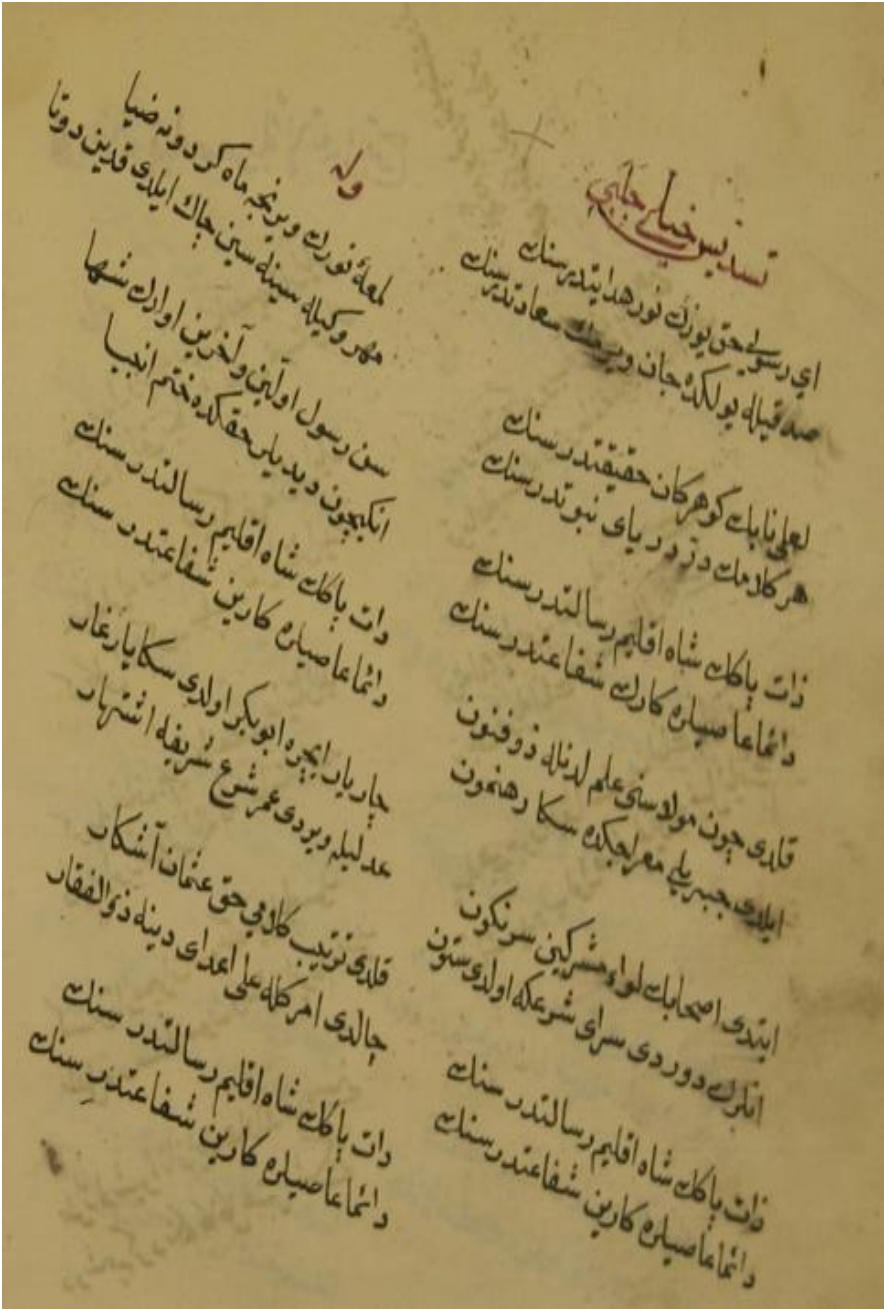 تسديس خيالي چلبي
اي رسول حق يوزك نور هدايتدير سنك
صدقيله يولكده جان ويرمك سعادتدير سنك
لعل نابك گوهر كان حقيقتدر سنك
هر كلامك در درياى نبوتدر سنك
ذات پاكك شاه اقليم رسالتدر سنك
دائما عاصيلره كارك شفاعتدر سنك
قلدى چون مولا سنى علم لدنله ذوفنون
ايلدى جبريلى معراجكده سكا رهنمون
ايتدى اصحابك لواء مشركينى سرنكون
انلرك دوردى سراى شرعكه اولدى ستون
ذات پاكك شاه اقليم رسالتدر سنك
دائما عاصيلره كارين شفاعتدر سنك
وله
لمعۀ نورك ويرنجه ماه كردونه ضيا
مهر وكيله سينه سين چاك ايلدى قدين دوتا
سن رسول اولين وآخرين اولدك شها
انكيچون ديديلر حقكده ختم انبيا
دات پاكك شاه اقليم رسالتدر سنك
دائما عاصيلره كارين شفاعتدر سنك
چار يار ايچره ابوبكر اولدى سكا يار غار
عدليله ويردى عمر شرع شريفه اشتهار
قلدى ترتيب كلام حق عثمان آشكار
چالدى امركله على اعداى دينه ذوالفقار
دات پاكك شاه اقليم رسالتدر سنك
دائما عاصيلره كارين شفاعتدر سنك